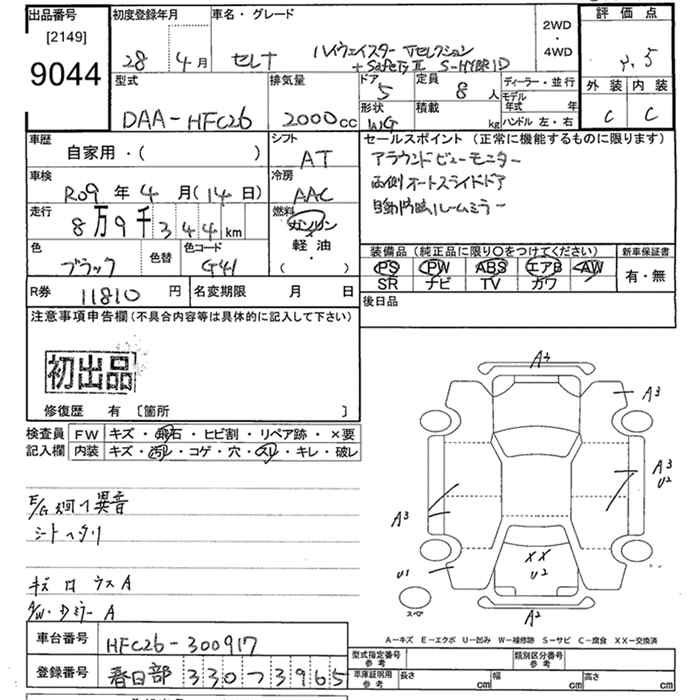 出品番号 初度登録年月 車名・グレード 2WD・4WD 評価点
[2149]
9044 28年4月 セレナ ハイウェイスター Vセレクション
+SafetyⅡ S-HYBRID 4.5
型式 排気量 ドア 5 定員 8人 ディーラー・並行 外装 内装
DAA-HFC26 2000cc 形状 WG 積載 kg モデル年式 年 C C
ハンドル 左・右
車歴 シフト セールスポイント (正常に機能するものに限ります)
自家用・( ) AT アラウンドビューモニター
車検 冷房 両側オートスライドドア
R09年4月(14日) AAC 自動防眩ルームミラー
走行 燃料
8万9千344km ガソリン・軽油・( )
色 色替 色コード 装備品 (純正品に限り○をつけてください) 新車保証書
ブラック G41 PS PW ABS エアB AW 有・無
SR ナビ TV カワ
R券 11810円 名変期限 月 日 後日品
注意事項申告欄(不具合内容等は具体的に記入して下さい)
初出品
修復歴 有 [箇所 ]
検査員 FW キズ・飛石・ヒビ割・リペア跡・×要
記入欄 内装 キズ・汚レ・コゲ・穴・スレ・キレ・破レ
A4
A3
A3
U2
E/G 異音
シートヘタリ
A3
U1
XX
U2
スペア
キズ ロ ウス A
A/W・Dミラー A
A2
A-キズ E-エクボ U-凹み W-補修跡 S-サビ C-腐食 XX-交換済
車台番号 HFC26-300917
登録番号 春日部330つ3965
型式指定番号 参考 類別区分番号 参考
車庫証明用 参考 長さ cm 幅 cm 高さ cm